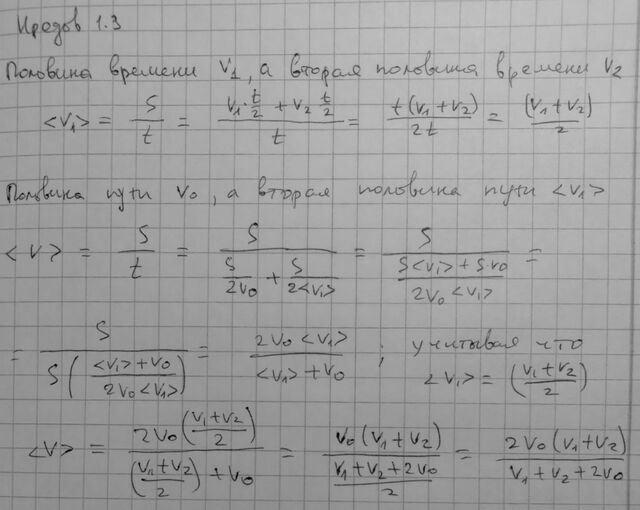 Иродов 1.3
Половина времени V₁, а вторая половина времени V₂
<V₁> = S/t = (V₁·t/2 + V₂ t/2)/t = t(V₁+V₂)/2t = (V₁+V₂)/2
Половина пути V₀, а вторая половина пути <V₁>
<V> = S/t = S/(S/2V₀ + S/2<V₁>) = S/((S<V₁> + SV₀)/2V₀<V₁>) =
= S/(S((<V₁>+V₀)/2V₀<V₁>)) = 2V₀<V₁>/(<V₁>+V₀) ; учитывая что
<V₁> = ((V₁+V₂)/2)
<V> = 2V₀((V₁+V₂)/2)/(((V₁+V₂)/2)+V₀) = V₀(V₁+V₂)/((V₁+V₂+2V₀)/2) = 2V₀(V₁+V₂)/(V₁+V₂+2V₀)